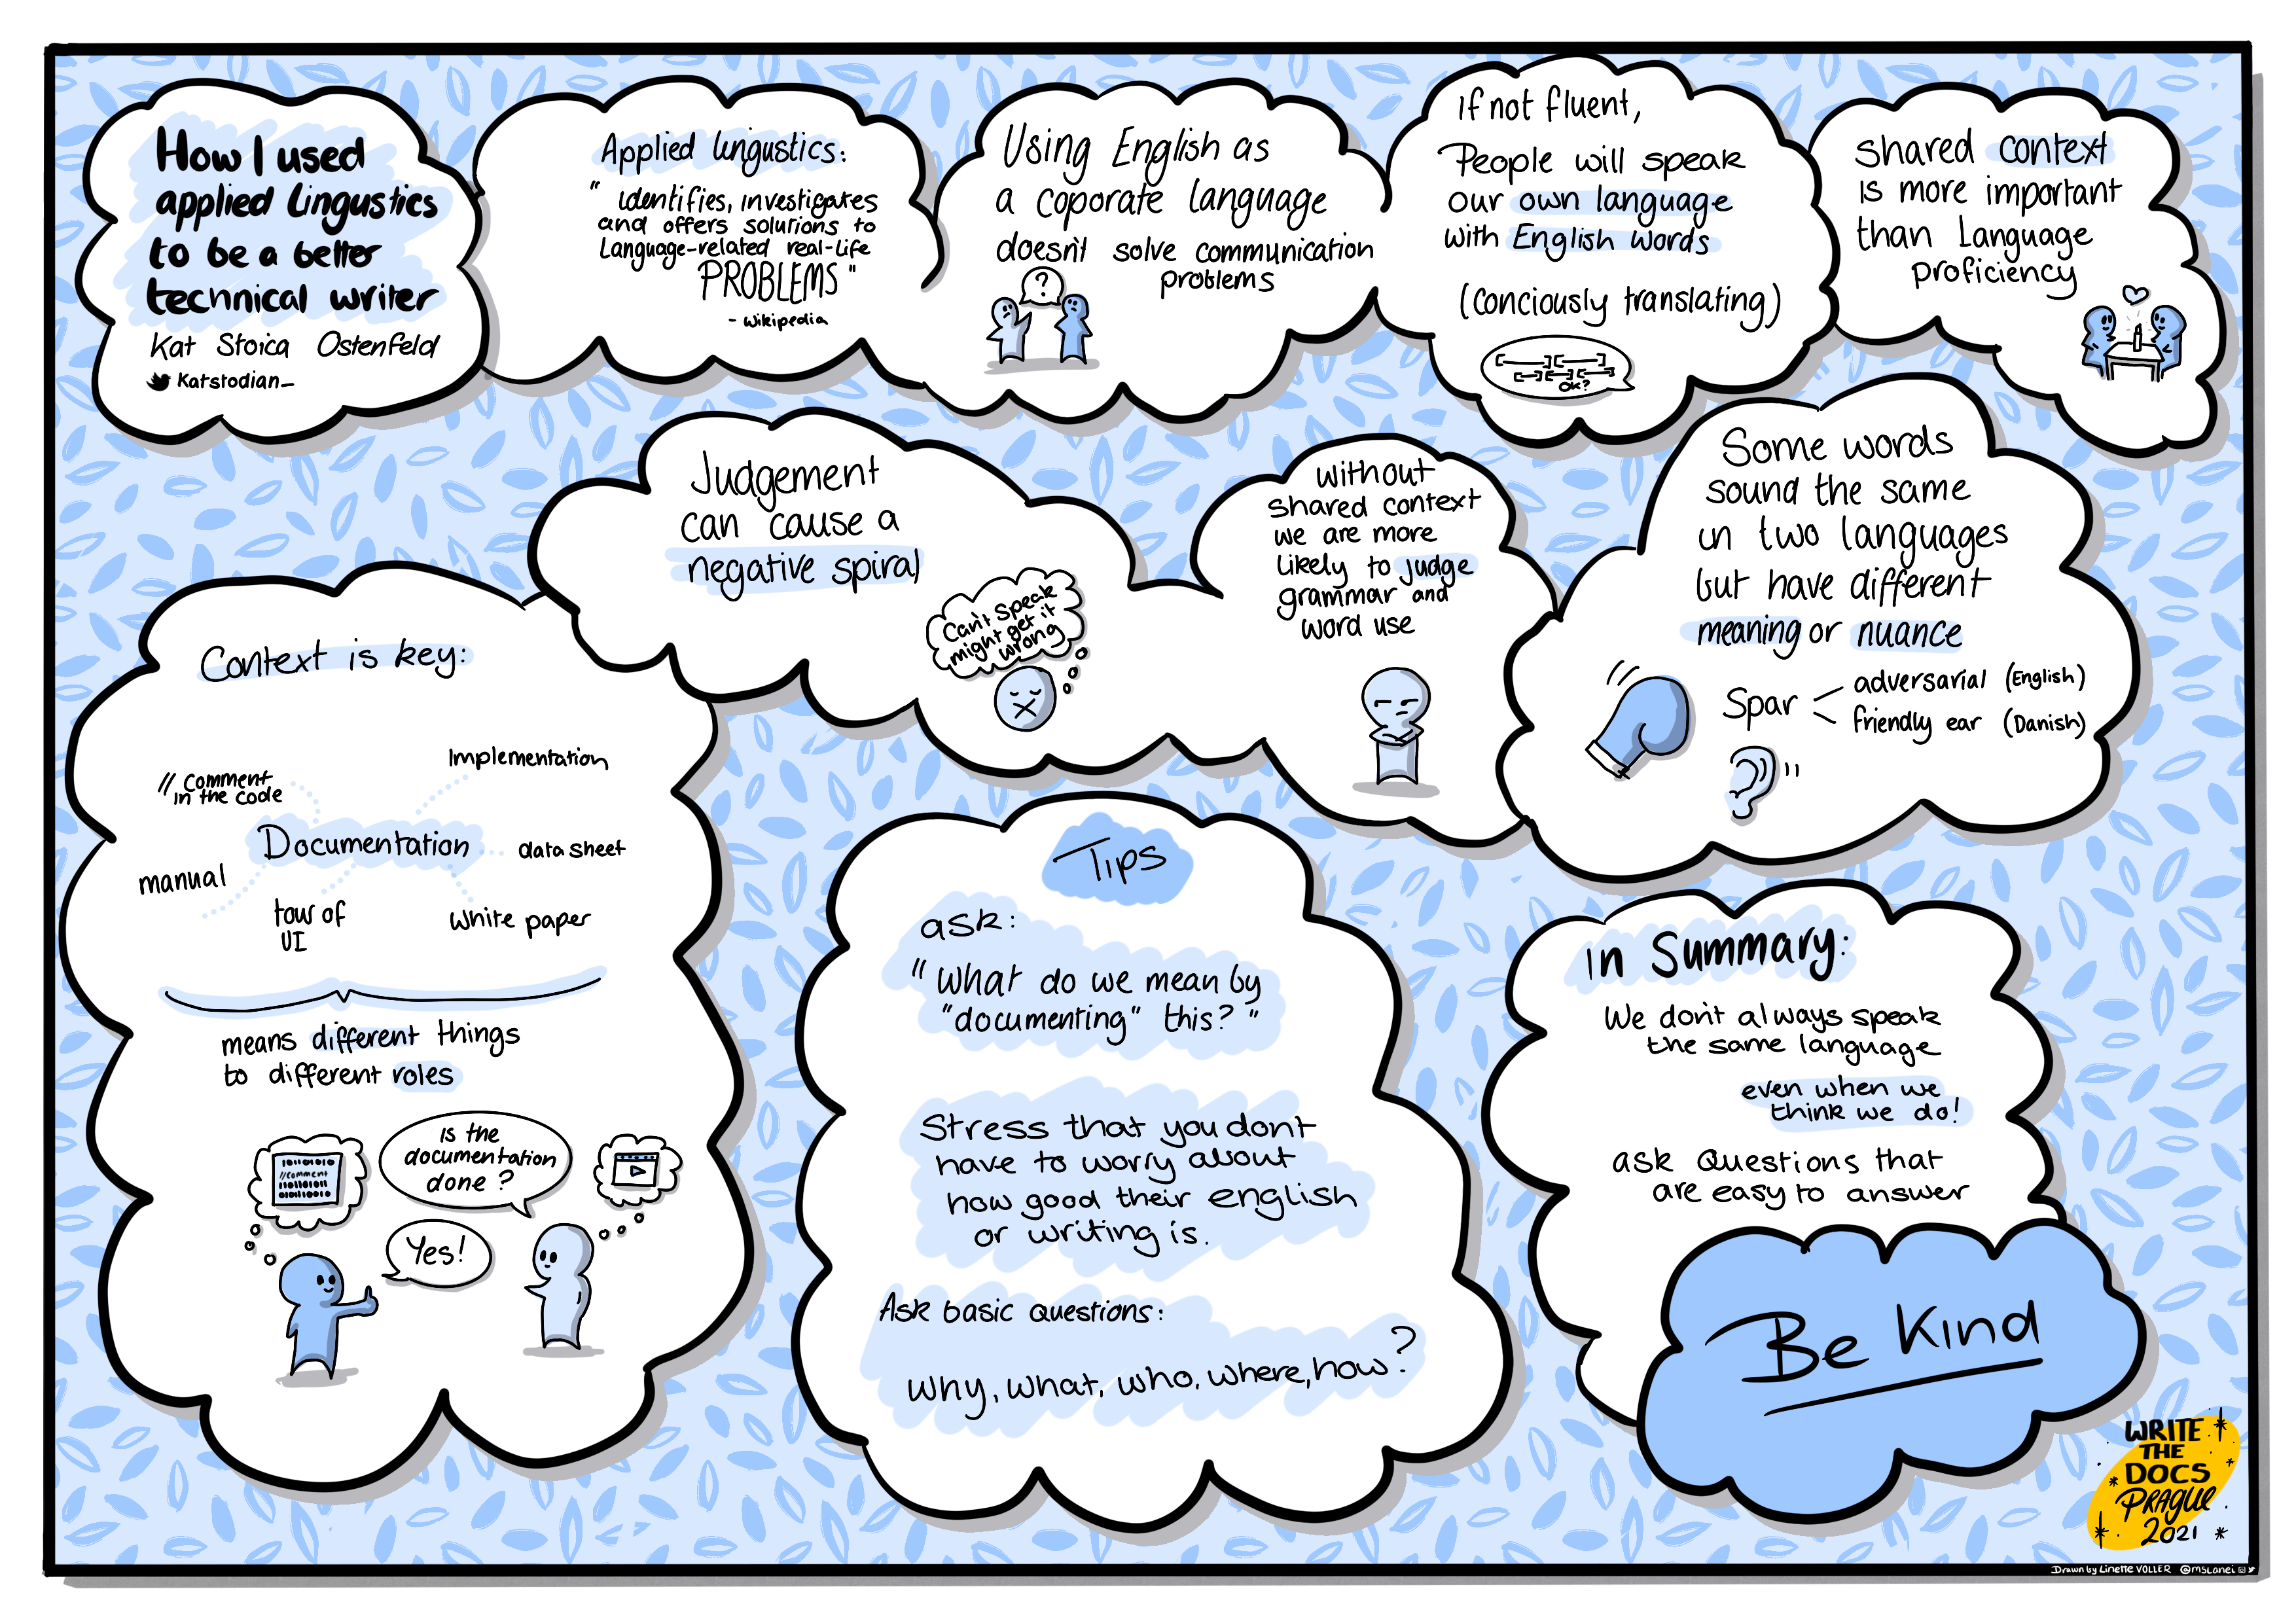 How I used
applied Lingustics
to be a better
technical writer
Kat Stoica Ostenfeld
Katstodian_
Applied lingustics:
" identifies, investigates
and offers solutions to
Language-related real-life
PROBLEMS"
- Wikipedia
Using English as
a coporate language
doesn't solve communication
problems
?
If not fluent,
People will speak
our own language
with English words
(conciously translating)
OK?
shared context
is more important
than Language
proficiency
Judgement
can cause a
negative spiral
Can't speak
might get it
wrong
without
shared context
we are more
likely to judge
grammar and
word use
Some words
sound the same
in two languages
but have different
meaning or nuance
Spar
adversarial (English)
friendly ear (Danish)
Context is key:
Implementation
// comment
in the code
Documentation
data sheet
manual
tour of
UI
white paper
means different things
to different roles
is the
documentation
done?
//comment
Yes!
Tips
ask:
"What do we mean by
"documenting" this?"
Stress that you dont
have to worry about
how good their english
or writing is.
Ask basic questions:
Why, what, who, where, how?
In Summary:
We don't always speak
the same language
even when we
think we do!
ask Questions that
are easy to answer
Be Kind
WRITE
THE
DOCS
PRAGUE
2021
Drawn by Linette VOLLER @mslanei